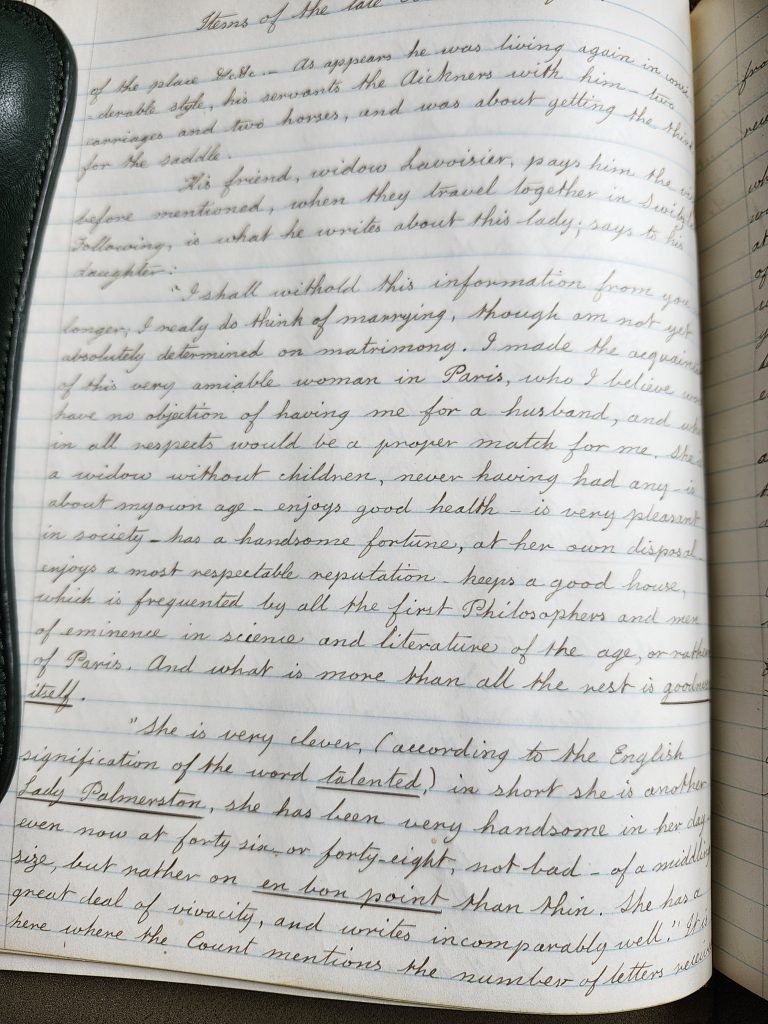 Items of the late
of the place &c&c. - As appears he was living again in consi-
-derable style, his servants the Aickners with him - two
carriages and two horses, and was about getting the third
for the saddle.
His friend, widow Lavoisier, pays him the
before mentioned, when they travel together in
Following, is what he writes about this lady; says to his
daughter:
"I shall withold this information from you
longer, I realy do think of marrying, though am not yet
absolutely determined on matrimony. I made the
of this very amiable woman in Paris, who I believe
have no objection of having me for a husband, and
in all respects would be a proper match for me. She
a widow without children, never having had any - is
about my own age - enjoys good health - is very pleasant
in society - has a handsome fortune, at her own disposal -
enjoys a most respectable reputation - keeps a good house,
which is frequented by all the first Philosophers and men
of eminence in science and literature of the age, or rather
of Paris. And what is more than all the rest is goodness
itself.
"She is very clever, (according to the English
signification of the word talented,) in short she is another
Lady Palmerston, she has been very handsome in her day -
even now at forty six or forty-eight, not bad - of a middling
size, but rather on en bon point than thin. She has a
great deal of vivacity, and writes incomparably well." It is
here where the Count mentions the number of letters